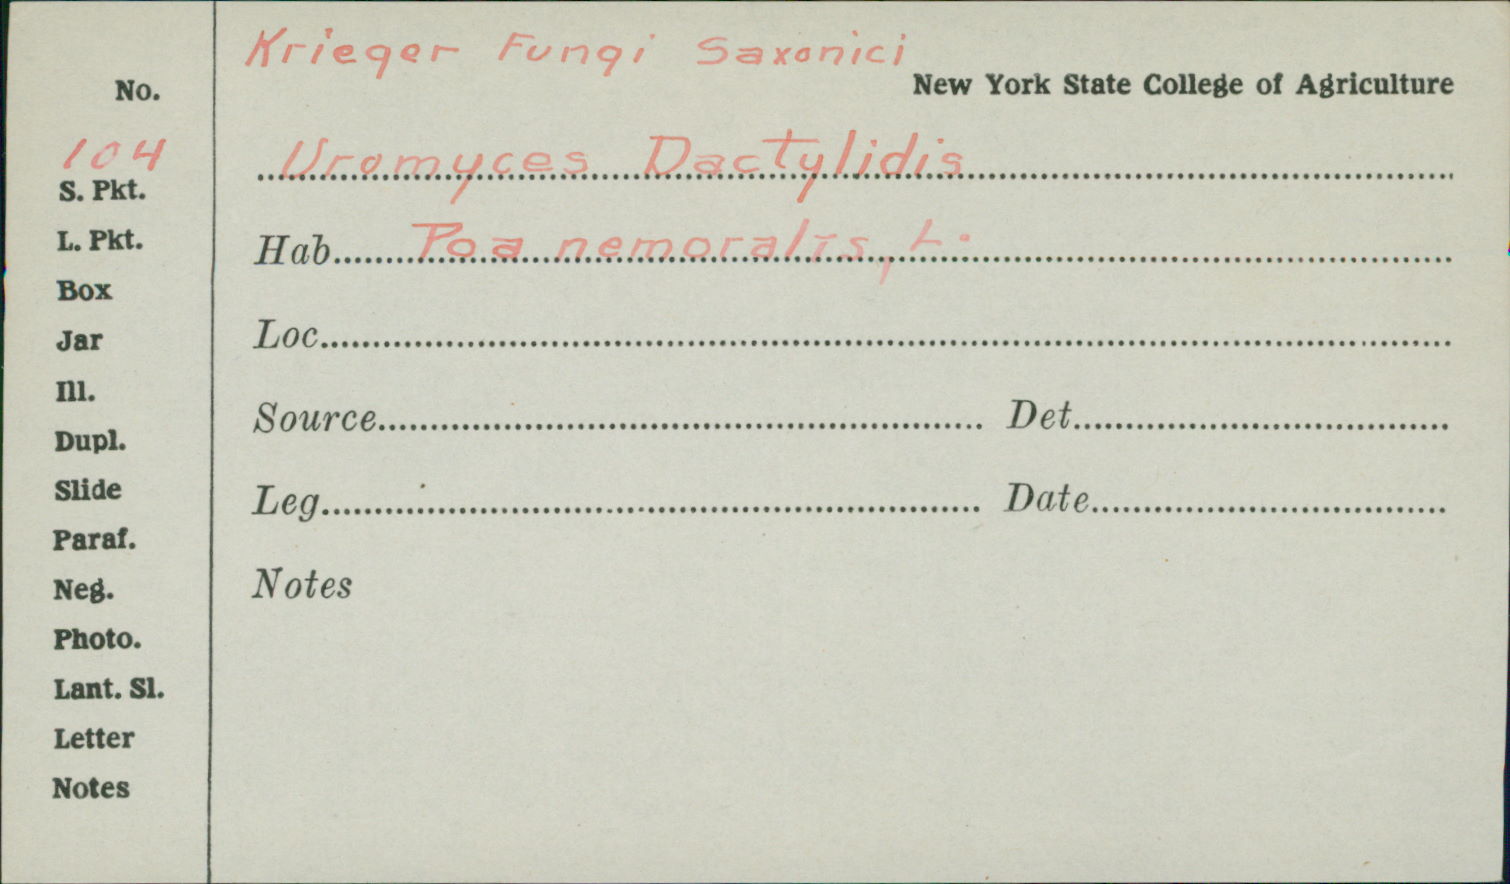 Krieger Fungi Saxonici
New York State College of Agriculture
No.
104
Uromyces Dactylidis
S. Pkt.
L. Pkt.
Hab. Poa nemoralis, L.
Box
Jar
Loc.
Ill.
Dupl.
Source Det.
Slide
Leg. Date
Paraf.
Neg.
Notes
Photo.
Lant. Sl.
Letter
Notes